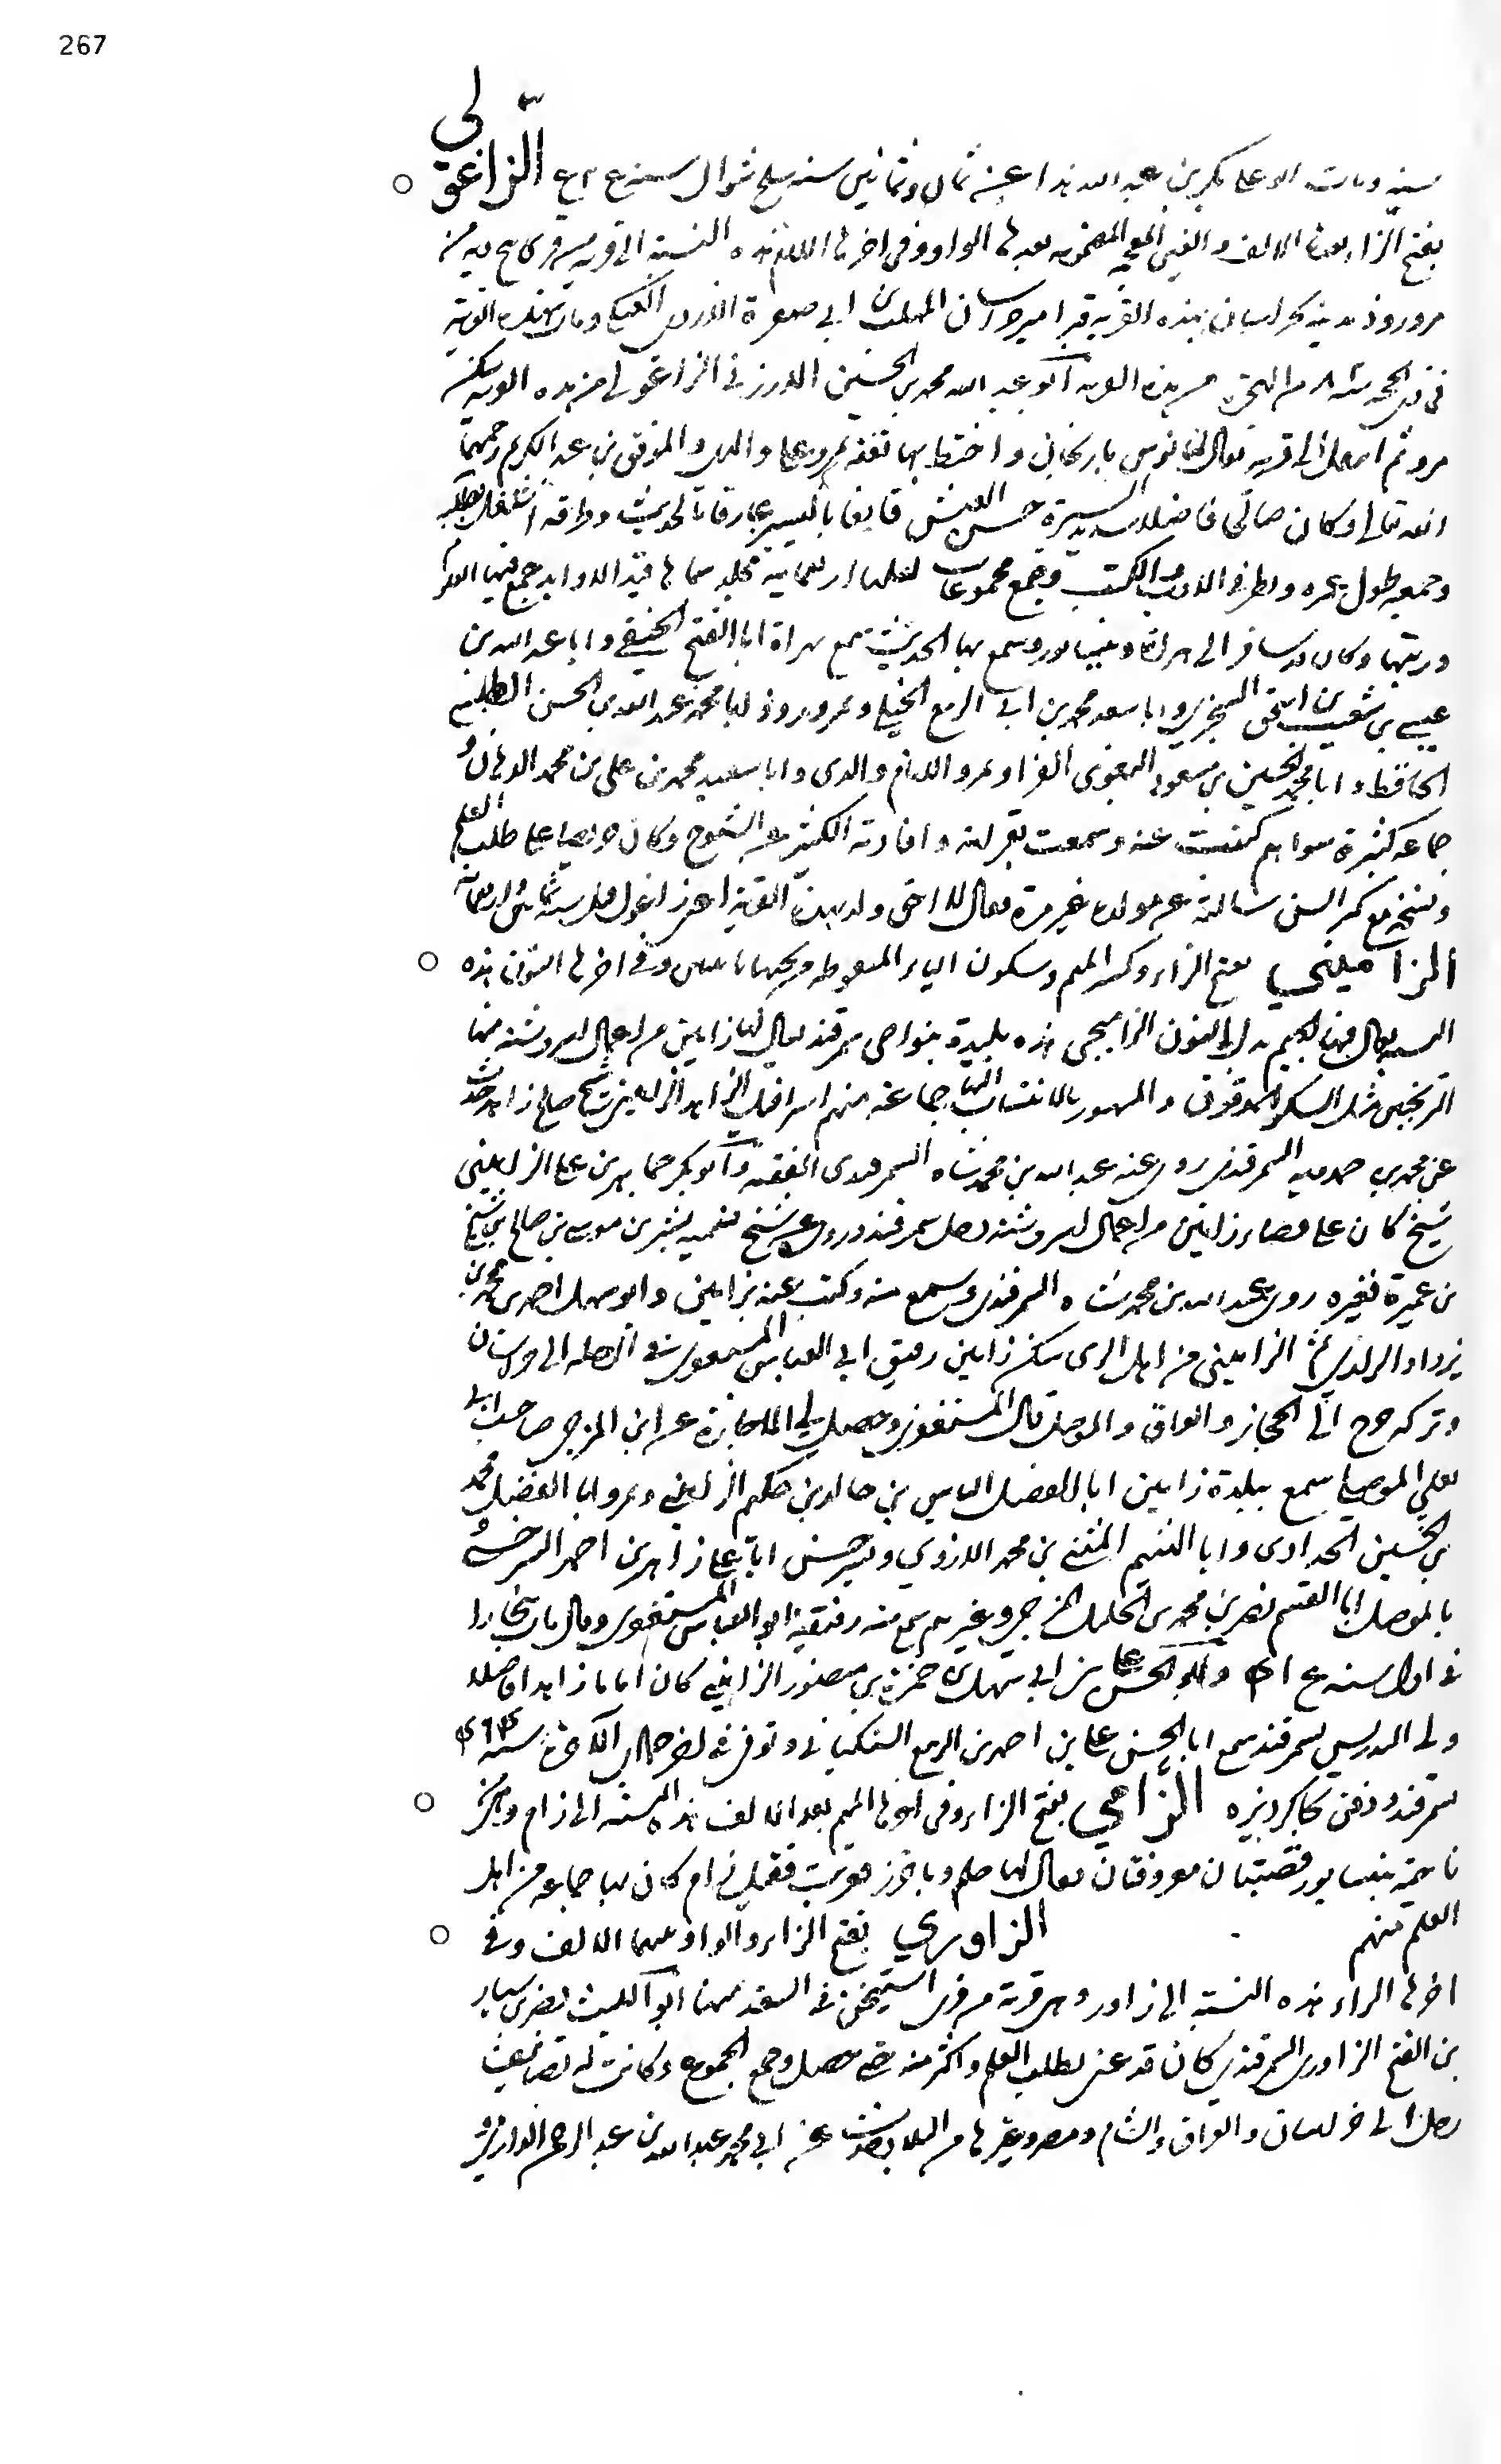 267
سنة ومات ابو على بكر بن عبد الله هذا عن ثمان وثمانين سنة سلخ شوال سنة الزاغولى
بفتح الزاء بعدها الالف والغين المعجمة المضمومة بعدها الواو وفى اخرها اللام هذه النسبة الى قرية من قرى
مروروذ بخراسان بهذه القرية قبر امير خراسان المهلب بن ابى صفرة الازدى العتكى ومات بهذه القرية
فى ذى الحجة من هذه القرية ابو عبد الله محمد بن الحسين الازرقى الزاغولى من هذه القرية سكن
مرو ثم انتقل الى قرية يقال لها نوس واختط بها تفقه بمرو على والدى والموفق بن عبد الكريم رحمهما
الله تعالى وكان صالحا فاضلا سديد السيرة خشن العيش قانعا باليسير عارفا بالحديث وطرقه اشتغل بطلبه
وجمعه طول عمره ونظر فى الادب والكتب وجمع مجموعات لعلها اربعمائة مجلد سماها قيد الاوابد جمع فيها العلوم
ورتبها وكان قد سافر الى هراة ونيسابور وسمع بها الحديث سمع بهراة ابا الفتح الحنفى وابا عبد الله بن
عيسى بن شعيب بن اسحق السجزى وابا سعد محمد بن ابى الربيع الجبلى وبمروروذ ابا محمد عبد الله بن الحسن الطبسى
الحافظ وابا محمد الحسين بن مسعود البغوى الفرا وبمرو الامام والدى وابا سعيد محمد بن على بن محمد الدهان و
جماعة كثيرة سواهم كتبت عنه وسمعت بقراءته وافادته الكثير عن الشيوخ وكان حريصا على طلب العلم
ونسخه مع كبر السن سالته عن مولده غير مرة فقال لا احق ولد بهذه القرية اعنى زاغول قبل سنة ثمانين واربعمائة
الزامينى بفتح الزاء وكسر الميم وسكون الياء المنقوطة من تحتها باثنتين وفى اخرها النون هذه
النسبة يقال فيها بالجيم بدل النون الزاميجى هذه بليدة بنواحى سمرقند يقال لها زامين من اعمال اسروشنة منها
الترنجبين مثل السكر المدقوق والمشهور بالانتساب اليها جماعة منهم اسرافيل الزاهد الزامينى شيخ صالح زاهد حدث
عن محمد بن حمدويه السمرقندى روى عنه عبد الله بن محمد شاه السمرقندى الفقيه وابو بكر جماهر بن على الزامينى
شيخ كان على قضاء زامين من اعمال اسروشنة دخل سمرقند وروى عن شيخ لقيه بشير بن موسى بن صالح بن شيخ
بن عميرة وغيره روى عنه عبد الله بن محمد شاه السمرقندى وسمع منه وكتب عنه بزامين وابو سهل احمد بن محمد بن
يزداد الرازى ثم الزامينى من اهل الرى سكن زامين رفيق ابى العباس المستغفرى فى الرحلة الى خراسان
وتركه خرج الى الحجاز والعراق والموصل قال المستغفرى وحصل لى الاجازة عن ابن المرجى صاحب ابى
يعلى الموصلى سمع ببلدة زامين ابا الفضل الياس بن خالد بن حكيم الزامينى وبمرو ابا الفضل محمد
بن الحسين الحدادى وابا النسيم المثنى بن محمد الازدى وبسرخس ابا على زاهر بن احمد السرخسى و
بالموصل ابا القسم نصر بن محمد بن الخليل المرجى وغيرهم سمع منه رفيقه ابو العباس المستغفرى وقال مات ببخارا
فى اول سنة وابو الحسن على بن ابى سهل بن حمزة بن منصور الزامينى كان اماما زاهدا فاضلا
ولى التدريس بسمرقند سمع ابا الحسن على بن احمد بن الربيع السنكباثى وتوفى فى اخر جمادى الاخرة سنة
سمرقند ودفن بجاكرديزه الزامى بفتح الزاء وفى اخرها الميم بعد الالف هذه النسبة الى زام وهى
ناحية بنيسابور قصبتان معروفتان يقال لهما جام وباخرز فعربت فقيل زام كان بها جماعة من اهل
العلم منهم الزاورى بفتح الزاء والواو بينهما الالف وفى
اخرها الراء هذه النسبة الى زاور وهى قرية من قرى اشتيخن فى السغد منها ابو الليث نصر بن سيار
بن الفتح الزاورى السمرقندى كان قد عنى بطلب العلم واكثر منه حتى حصل وجمع الجموع وكانت له تصانيف
رحل الى خراسان والعراق والشام ومصر وغيرها من البلاد يحدث عن ابى محمد عبد الله بن عبد الرحمن الدارمى